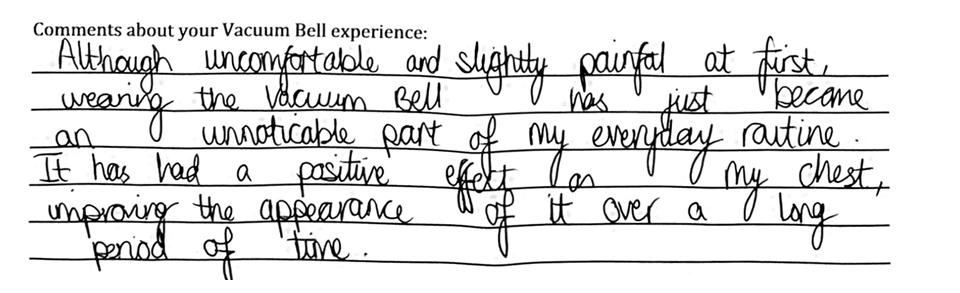 Comments about your Vacuum Bell experience:
Although uncomfortable and slightly painful at first,
wearing the Vacuum Bell has just become
an unnoticable part of my everyday routine.
It has had a positive effect on my chest,
improving the appearance of it over a long
period of time.